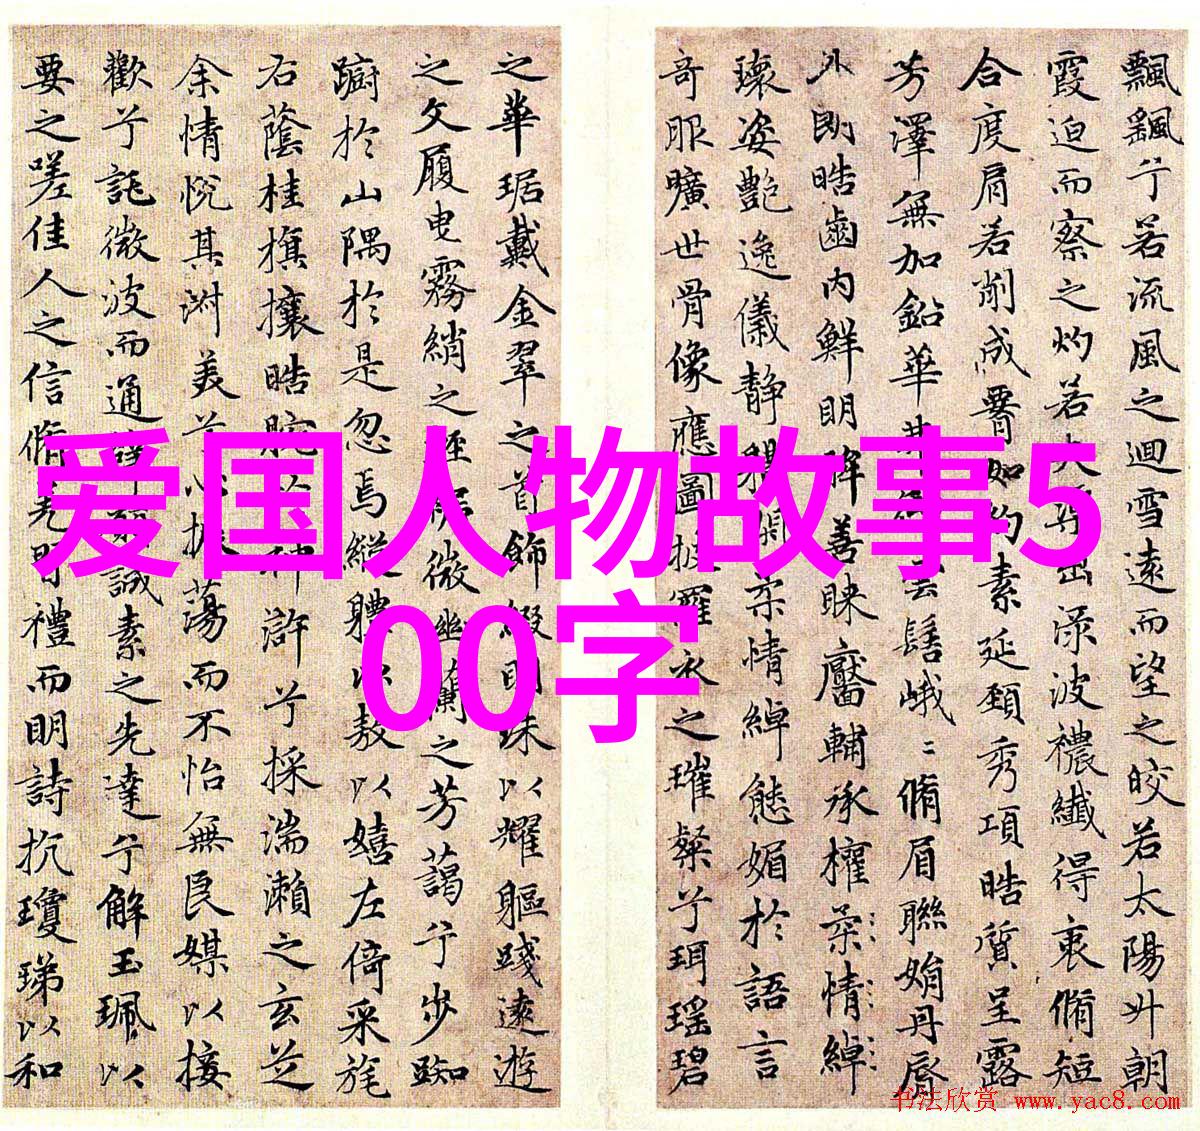 飄飖兮若流風之迴雪遠而望之皎若太陽升朝
霞迫而察之灼若夫蕖出淥波禯纖得衷脩短
合度肩若削成署如約素延頸秀項皓質呈露
芳澤無加鉛華弗御雲髻峨〻脩眉聯娟丹唇
外朗皓齒內鮮明眸善睞靨輔承權柔情綽
瓌姿艷逸儀靜體閑柔情綽態媚於語言
奇服曠世骨像應圖披羅衣之璀粲兮珥瑶碧
之華琚戴金翠之首飾綴明珠以耀軀踐遠遊
之文履曳霧綃之輕裾微幽蘭之芳藹兮步踟
躕於山隅於是忽焉縱軆以敖以嬉左倚采旄
右蔭桂旗攘皓腕於神滸兮採湍瀨之玄芝
余情悅其淑美兮心振蕩而不怡無良媒以接
歡兮託微波而通辭願誠素之先達兮解玉珮以
要之嗟佳人之信脩羌習禮而明詩抗瓊珶以和
爱国人物故事5
00字
书法欣赏 www.yac8.com